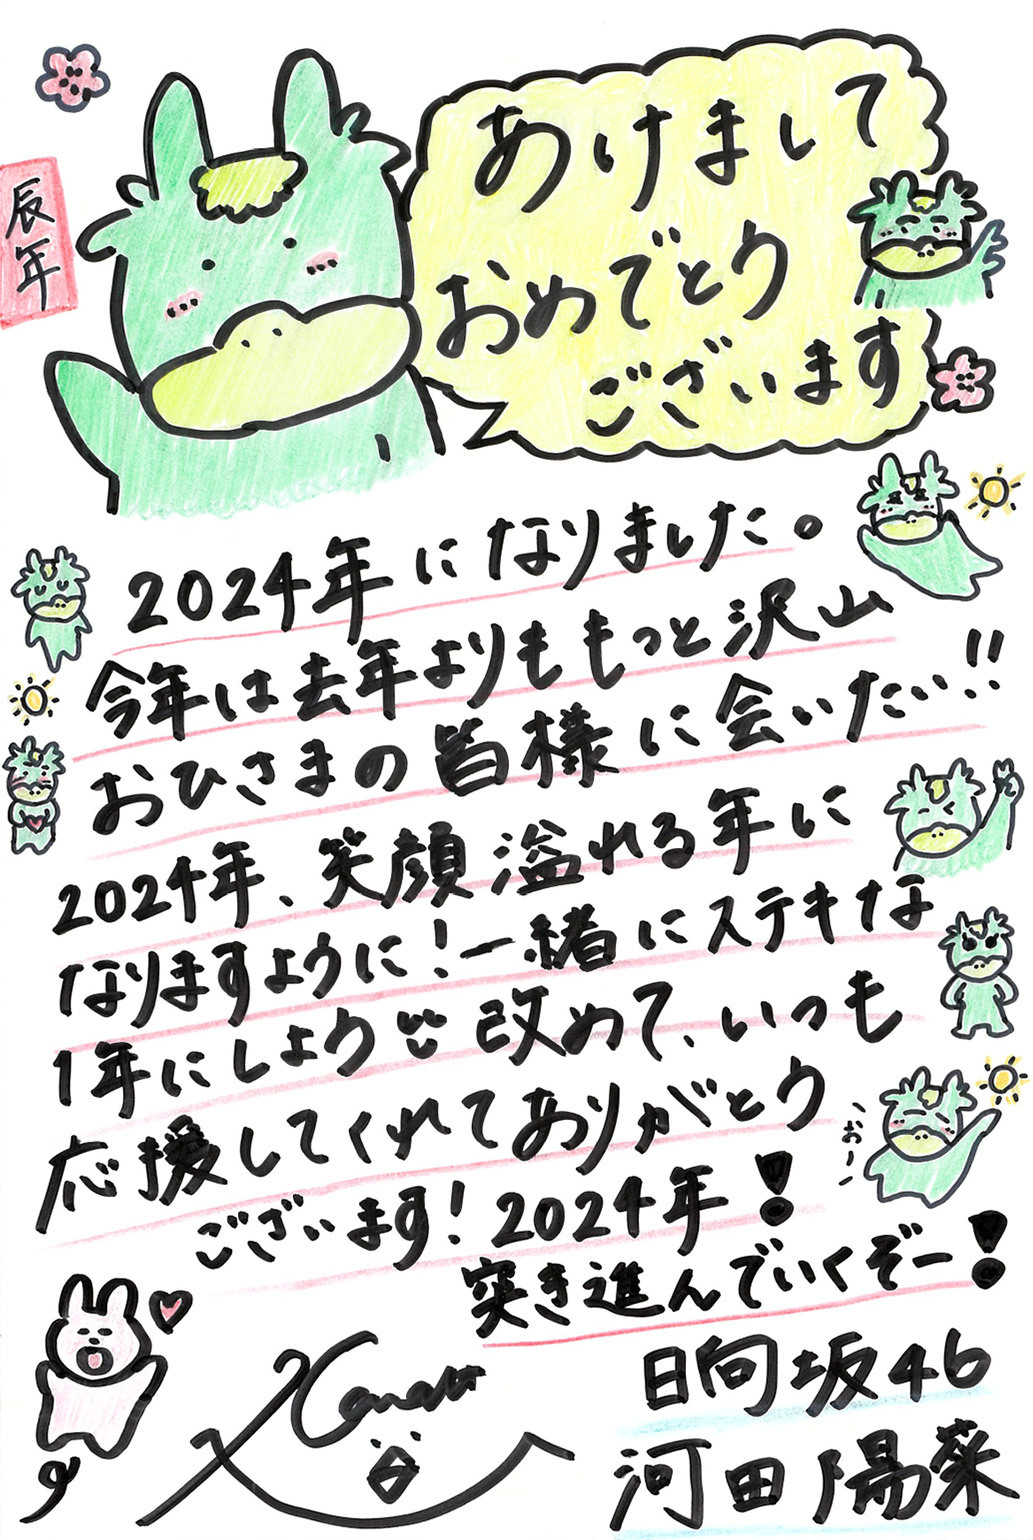 あけまして
おめでとう
ございます
辰年
2024年になりました。
今年は去年よりももっと沢山
おひさまの皆様に会いたい!!
2024年、笑顔溢れる年に
なりますように!一緒にステキな
1年にしましょう
改めて、いつも
応援してくれてありがとう
ございます!2024年!
突き進んでいくぞー!
おー
日向坂46
河田陽菜